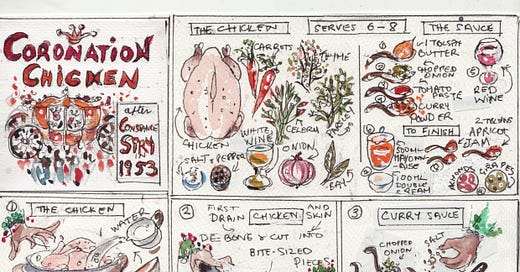 CORONATION
CHICKEN
after
CONSTANCE
SPRY
1953
THE CHICKEN
SERVES 6-8
CARROTS
THYME
CHICKEN
WHITE
WINE
CELERY
PARSLEY
SALT & PEPPER
ONION
BAY
THE SAUCE
1 TBLSP
BUTTER
CHOPPED
ONION
TOMATO
PASTE
CURRY
POWDER
RED
WINE
TO FINISH
2 TBLSPNS
APRICOT
JAM
500ML
MAYONN-
AISE
100ML
DOUBLE
CREAM
ALMONDS
GRAPES
1
THE CHICKEN
WATER
2
FIRST
DRAIN CHICKEN AND
SKIN
DE-BONE & CUT INTO
BITE-SIZED
PIECES
3
CURRY SAUCE
CHOPPED
ONION
SALT